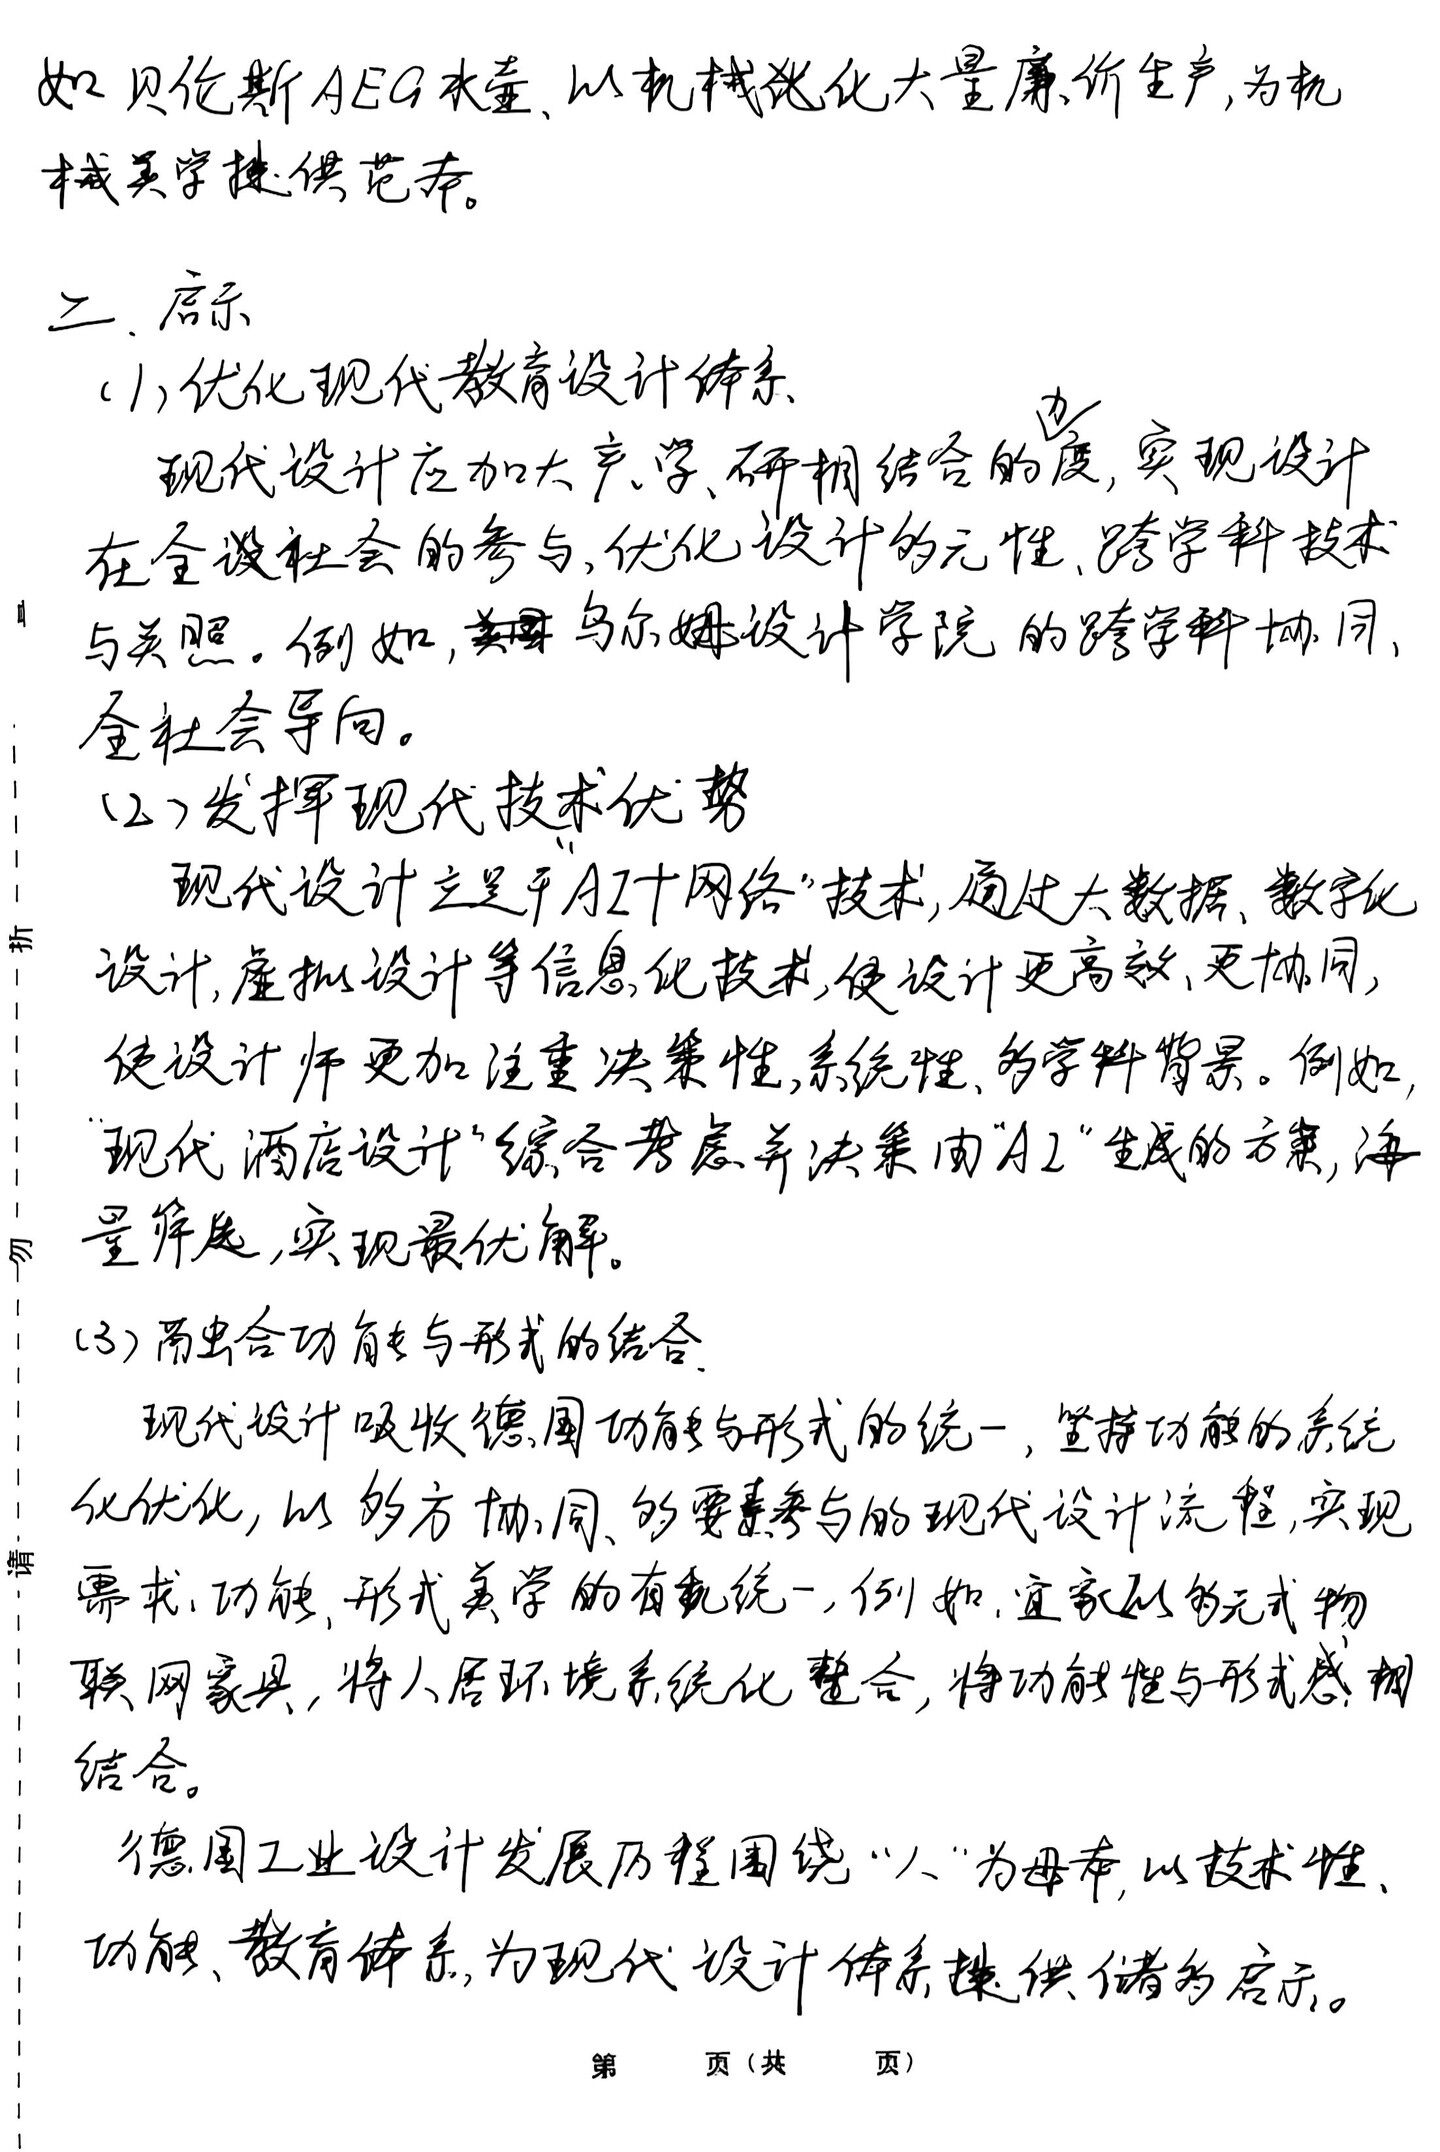 如贝伦斯AEG水壶、以机械化大量廉价生产,为机
械美学提供范本。
二、启示
(1)优化现代教育设计体系、
力
现代设计应加大产、学、研相结合的度,实现设计
在全设社会的参与,优化设计的元性、跨学科技术
与关照。例如,乌尔姆设计学院的跨学科协同、
全社会导向。
(2)发挥现代技术优势
现代设计立足于"AI+网络"技术,通过大数据、数字化
设计,虚拟设计等信息化技术,使设计更高效、更协同,
使设计师更加注重决策性、系统性、多学科背景。例如,
"现代酒店设计"综合考虑并决策由"AI"生成的方案,海
量筛选,实现最优解。
(3)融合功能与形式的结合.
现代设计吸收德国功能与形式的统一,坚持功能的系统
化优化,以多方协同、多要素参与的现代设计流程,实现
需求、功能、形式美学的有机统一,例如,宜家以多元式物
联网家具,将人居环境系统化整合,将功能性与形式感相
结合。
德国工业设计发展历程围绕"人"为母本,以技术性、
功能、教育体系,为现代设计体系提供诸多启示。
请勿折
第 页(共 页)